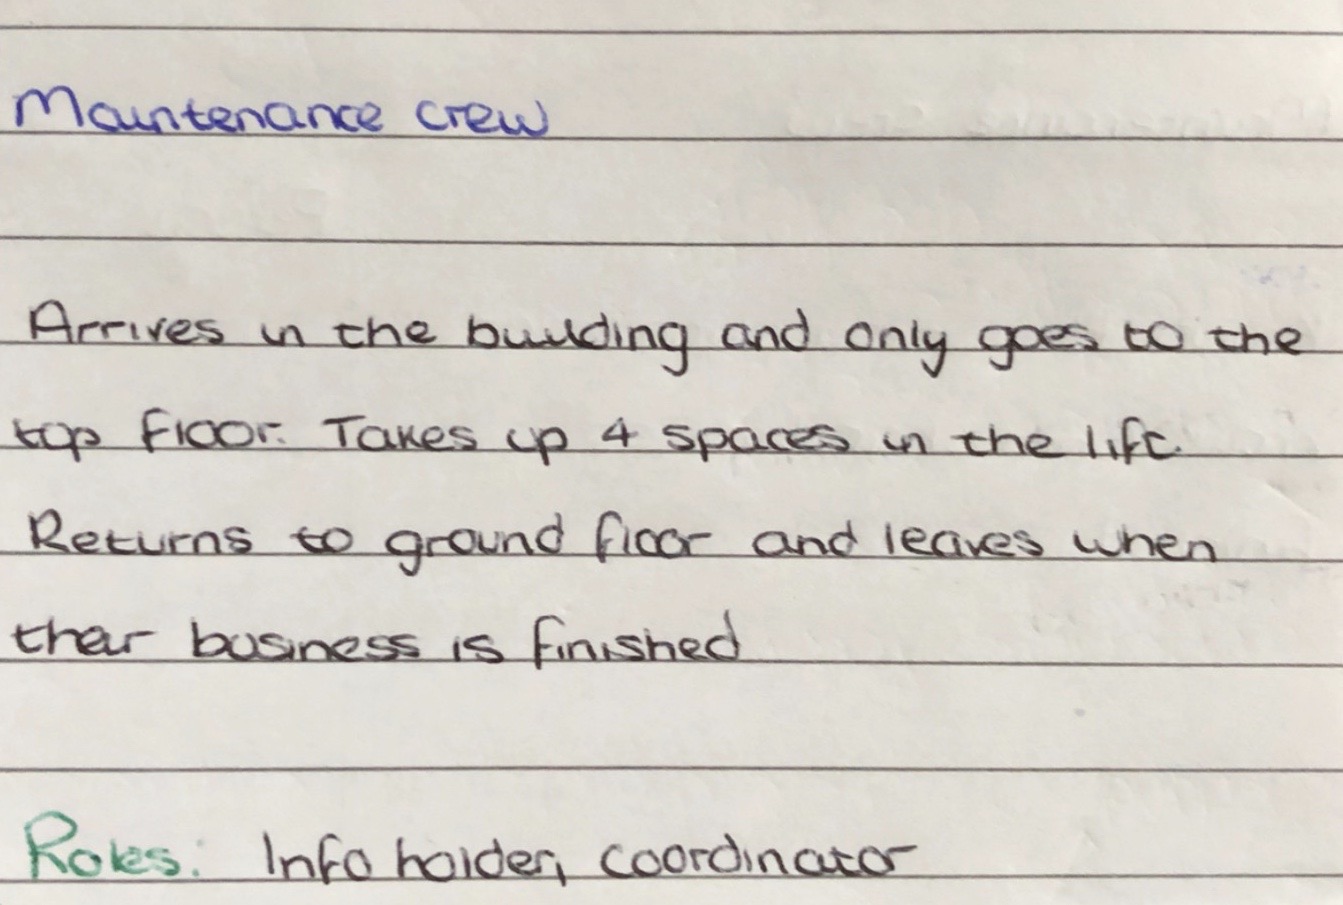 Maintenance crew
Arrives in the building and only goes to the
top floor. Takes up 4 spaces in the lift.
Returns to ground floor and leaves when
their business is finished
Roles: Info holder, coordinator